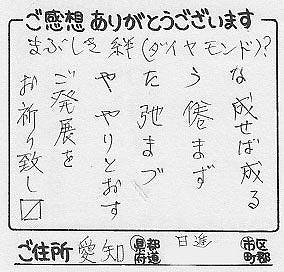 ご感想ありがとうございます
まぶしき絆(ダイヤモンド)?
な成せば成る
う倦まず
た弛まづ
ややりとおす
ご発展を
お祈り致し〼
ご住所 愛知 都道府県 日進 市区町郡